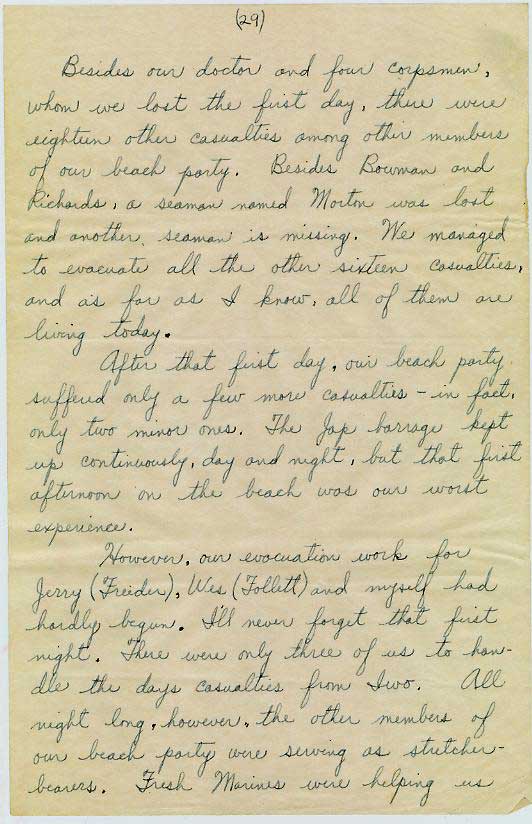 (29)
Besides our doctor and four corpsmen,
whom we lost the first day, there were
eighteen other casualties among other members
of our beach party. Besides Bowman and
Richards, a seaman named Morton was lost
and another seaman is missing. We managed
to evacuate all the other sixteen casualties,
and as far as I know, all of them are
living today.
After that first day, our beach party
suffered only a few more casualties - in fact,
only two minor ones. The Jap barrage kept
up continuously, day and night, but that first
afternoon on the beach was our worst
experience.
However, our evacuation work for
Jerry (Freider), Wes (Follett) and myself had
hardly begun. I'll never forget that first
night. There were only three of us to han-
dle the days casualties from Iwo. All
night long, however, the other members of
our beach party were serving as stretcher-
bearers. Fresh Marines were helping us